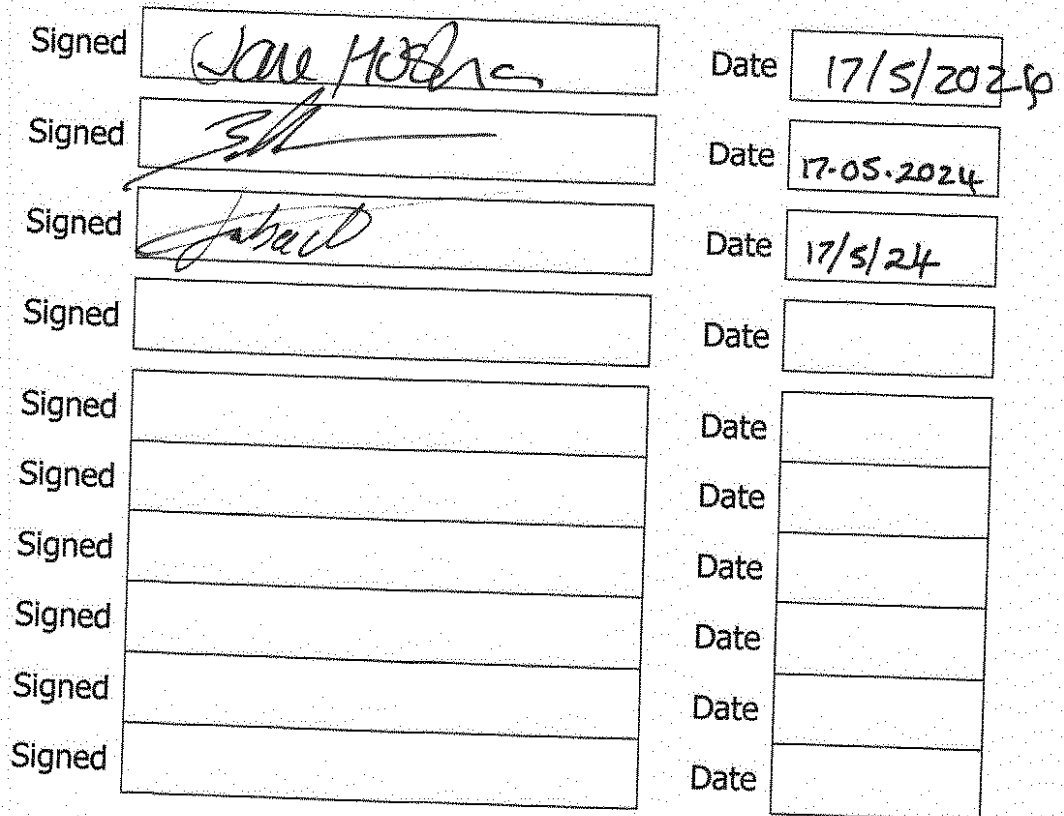 Signed Jane Date 17/5/202
Signed Date 17-05-2024
Signed Date 17/5/24
Signed Date
Signed Date
Signed Date
Signed Date
Signed Date
Signed Date
Signed Date